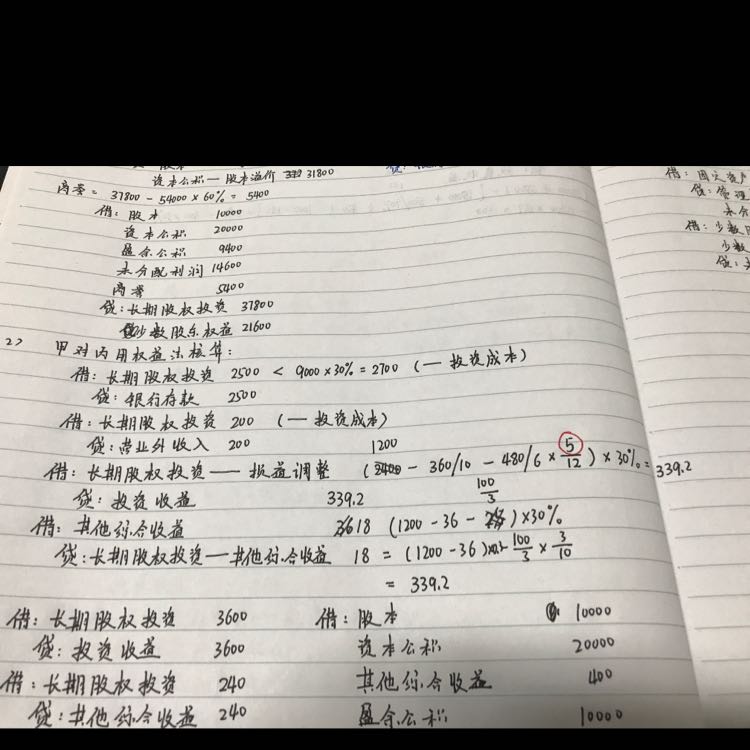 资本公积—股本溢价 31800
商誉 = 37800 - 54000 × 60% = 5400
借: 股本 10000
资本公积 20000
盈余公积 9400
未分配利润 14600
商誉 5400
贷: 长期股权投资 37800
少数股东权益 21600
2> 甲对丙用权益法核算:
借: 长期股权投资 2500 < 9000×30% = 2700 (—投资成本)
贷: 银行存款 2500
借: 长期股权投资 200 (—投资成本)
贷: 营业外收入 200
1200
借: 长期股权投资——损益调整 (2400 - 360/10 - 480/6 × 5/12) × 30% = 339.2
贷: 投资收益 339.2 100/3
借: 其他综合收益 18 (1200 - 36 - ) × 30%
贷: 长期股权投资—其他综合收益 18 = (1200 - 36) 100/3 × 3/10
= 339.2
借: 长期股权投资 3600
贷: 投资收益 3600
借: 长期股权投资 240
贷: 其他综合收益 240
借: 股本 10000
资本公积 20000
其他综合收益 400
盈余公积 10000
借: 固定资产
贷: 管理
未分
借: 少数股
少数
贷: